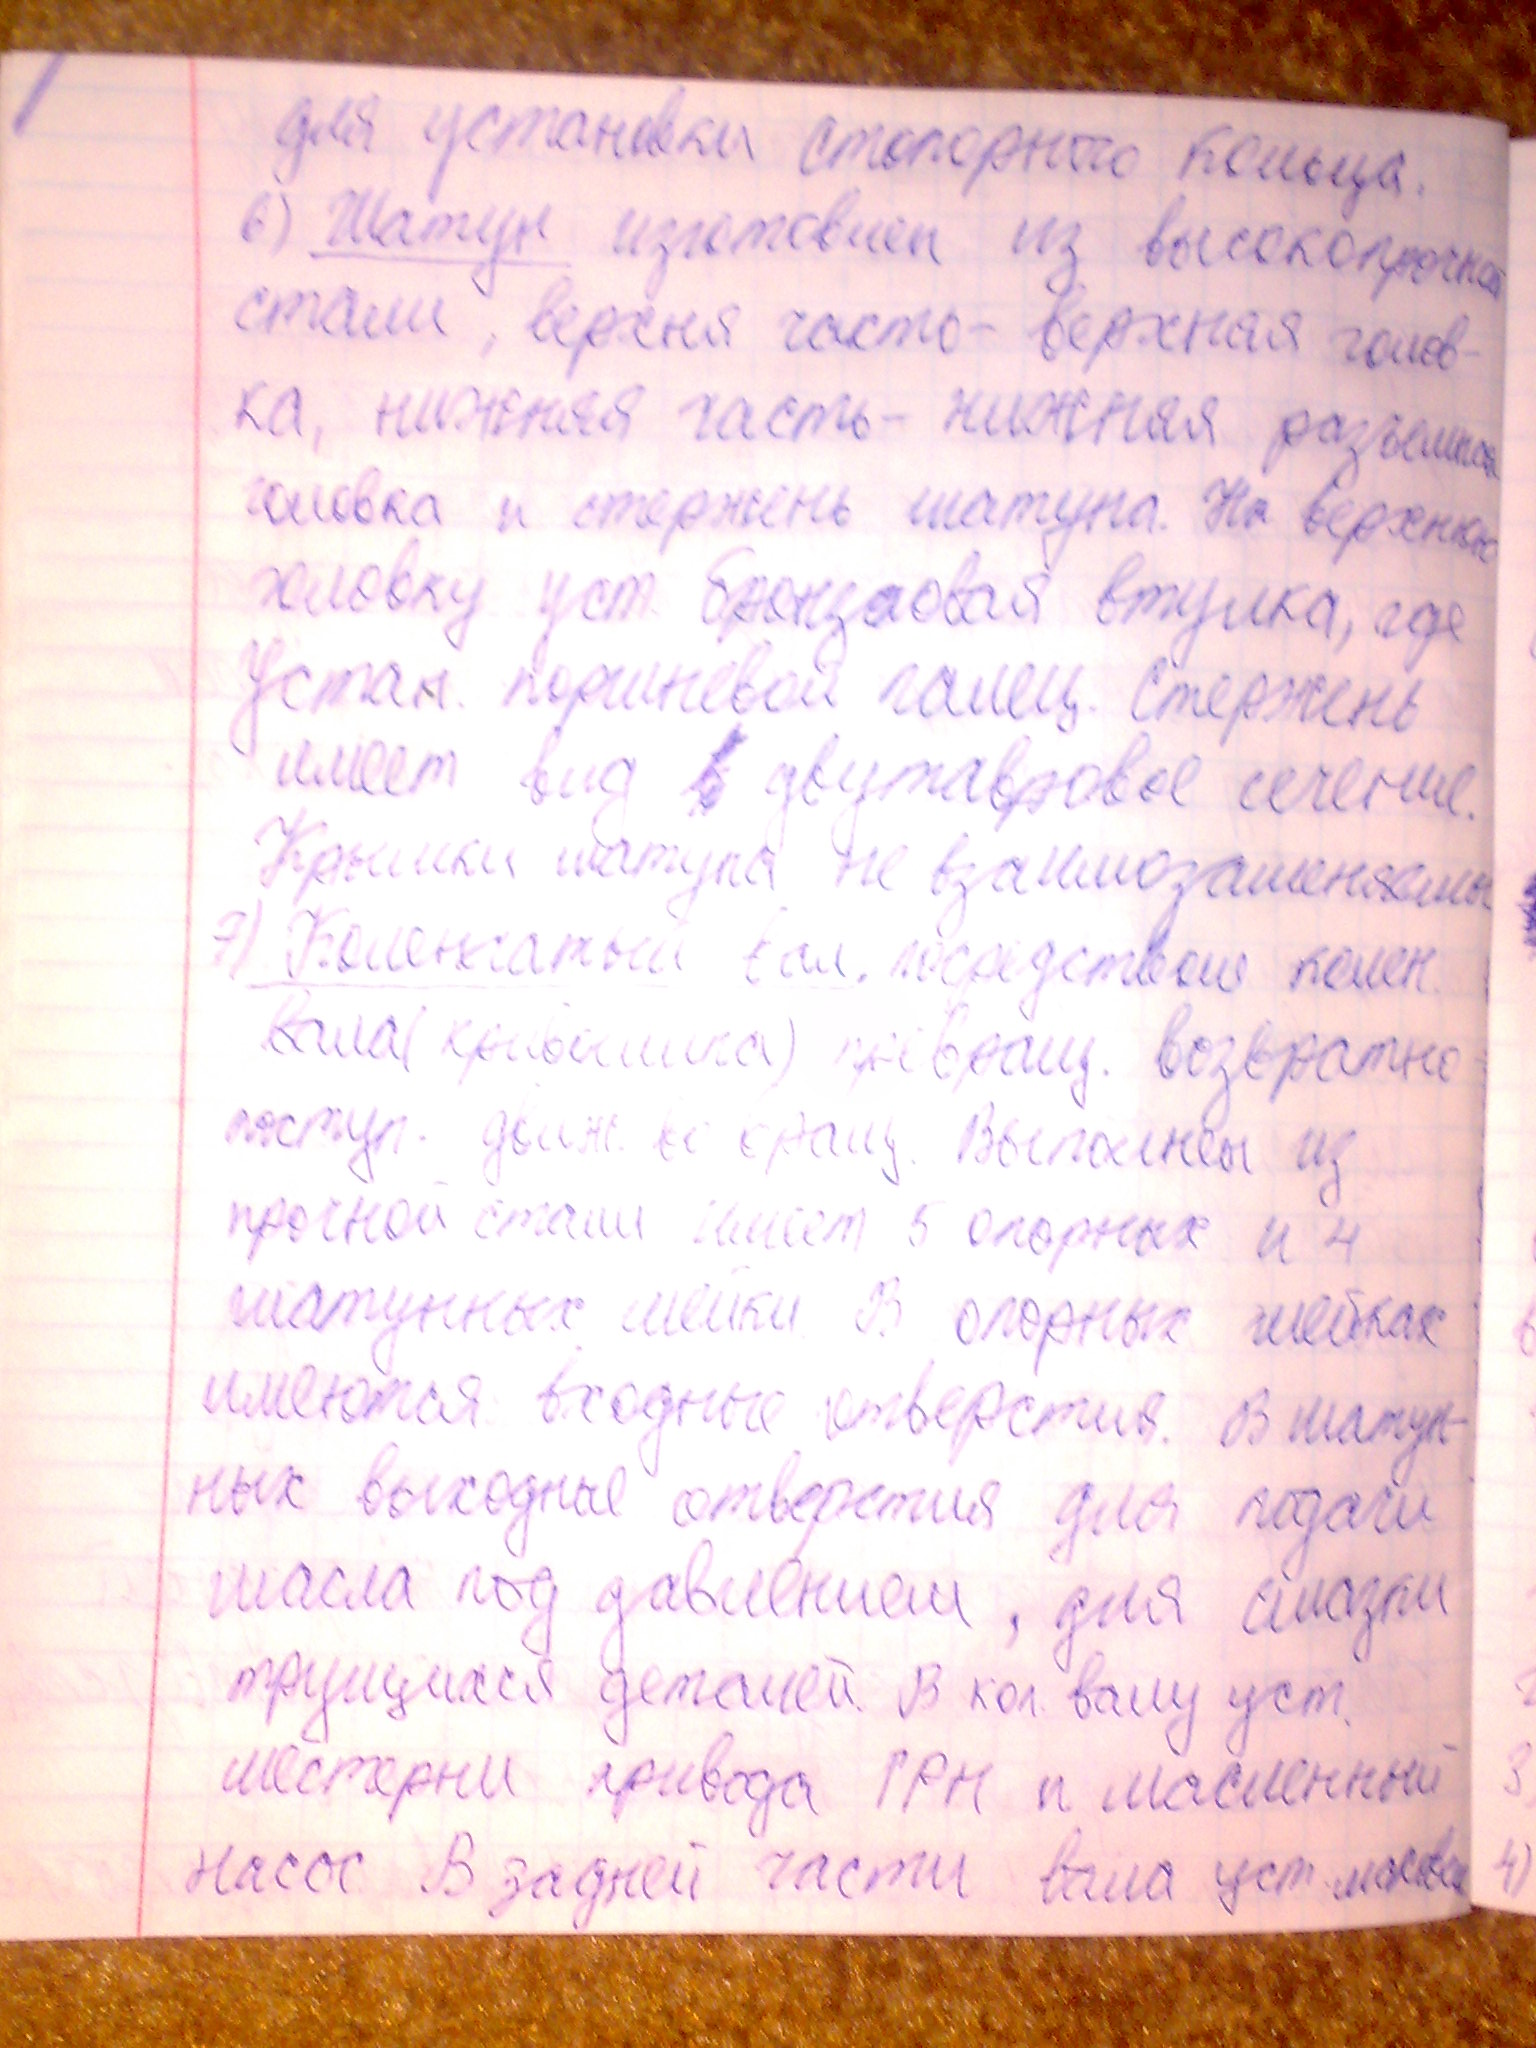 для установки стопорного кольца.
6) Шатун изготовлен из высокопрочной
стали, верхня часть - верхная голов-
ка, нижняя часть - нижняя разъемная
головка и стержень шатуна. На верхнюю
головку уст. бронзаовая втулка, где
Устан. поршневой палец. Стержень
имеет вид двутавровое сечение.
Крышки шатуна не взаимозаменяемы
7) Коленчатый вал. посредством колен.
вала (кривошипа) превращ. возвратно-
поступ. движ. во вращ. Выполнен из
прочной стали имеет 5 опорных и 4
шатунных шейки. В опорных шейках
имеются входные отверстия. В шатун-
ных выходные отверстия для подачи
масла под давлением, для смазки
трущихся деталей. В кол. валу уст.
шестерни привода ГРН и масленный
насос В задней части вала уст. маховик
3)
4)